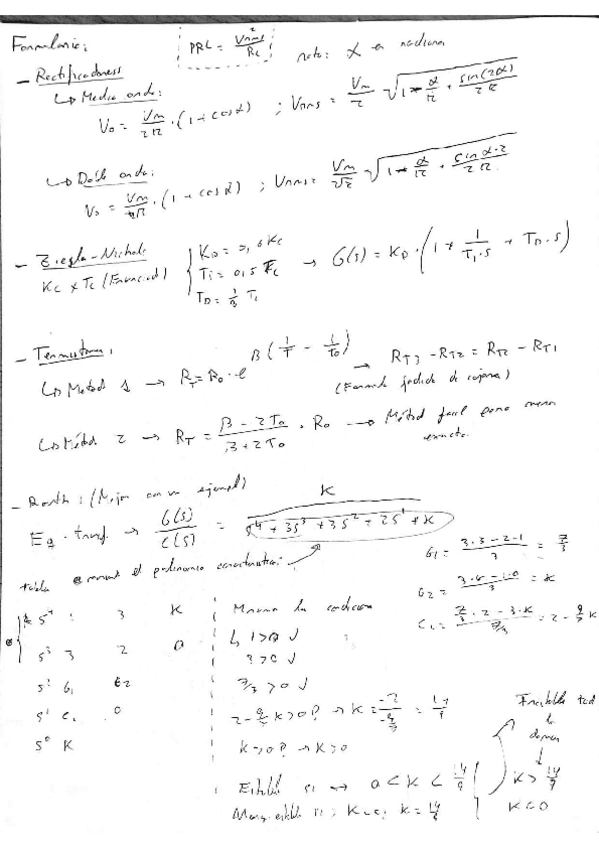 Formulario:
PRL = Vrms² / RL
nota: α en radianes
- Rectificadores
↳ Media onda:
Vo = Vm/2π · (1 + cosα) ; Vrms = Vm/2 √(1 - α/π + sin(2α)/2π)
↳ Doble onda:
Vo = Vm/π · (1 + cosα) ; Vrms = Vm/√2 √(1 - α/π + sin α·2/2π)
- Ziegler-Nichols
Kc y Tc (Enunciado)
{ KD = 0,6 Kc
Ti = 0,5 Tc
TD = 1/8 Tc
→ G(s) = KD · (1 + 1/(Ti·s) + TD·s)
- Termistores:
↳ Método 1 → RT = Ro · e^(β(1/T - 1/To)) → RT3 - RT2 = RT2 - RT1
↳ Método 2 → RT = (β - 2To)/(β + 2To) · Ro → Método facil pero menos
exacto
- Routh: (Mejor con un ejemplo)
Eq. transf. → G(s)/C(s) = K / (s⁴ + 3s³ + 3s² + 2s¹ + K)
tabla el polinomio caracteristico:
b1 = (3·3 - 2·1)/3 = 7/3
b2 = (3·K - 1·0)/3 = K
C1 = (7/3 · 2 - 3·K)/(7/3) = 2 - 9/7 K
s⁴ 1 3 K
s³ 3 2 0
s² b1 b2
s¹ c1 0
s⁰ K
↳ 1>0 √
3>0 √
7/3>0 √
2 - 9/7 K>0? → K = -2/(-9/7) = 14/9
K>0? → K>0
Estable si → 0 < K < 14/9
Marg. estable si: K=0; K = 14/9
K > 14/9
K<0